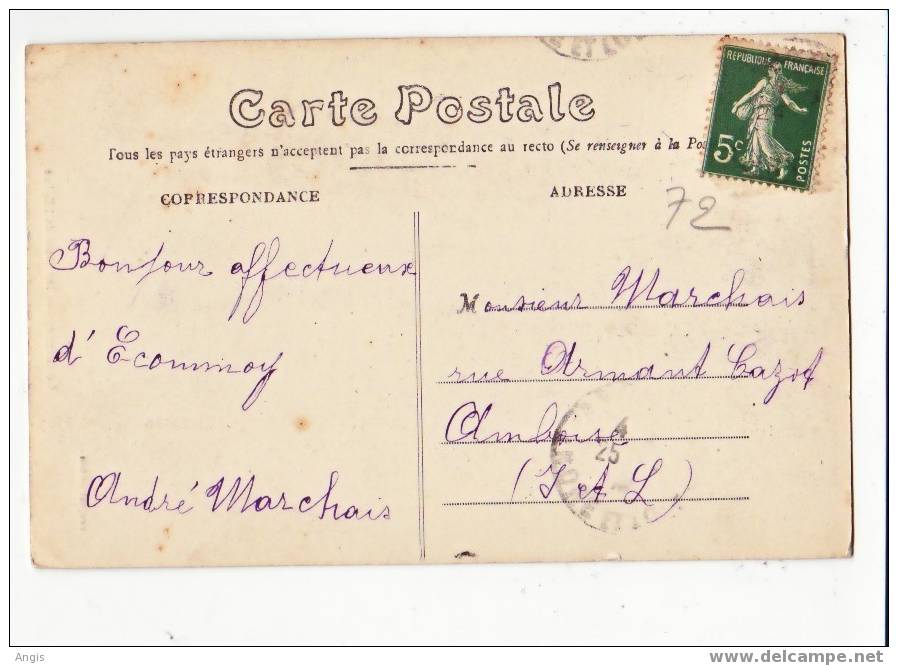 Carte Postale
Tous les pays étrangers n'acceptent pas la correspondance au recto (Se renseigner à la
CORRESPONDANCE
ADRESSE
REPUBLIQUE FRANÇAISE
5c
POSTES
72
Bonjour affectueux
d'Ecommoy
André Marchais
Monsieur Marchais
rue Armant Cazot
Amboise
(I et L)
25
Angis
www.delcampe.net